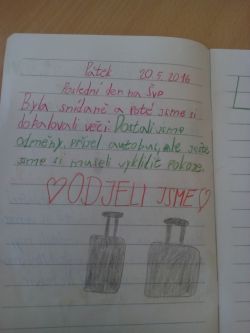 Pátek 20.5.2016
Poslední den na ŠvP
Byla snídaně a poté jsme si
dobalovali věci. Dostali jsme
odměny, přijel autobus, ale ještě
jsme si museli vyklidit pokoje.
♡ODJELI JSME♡